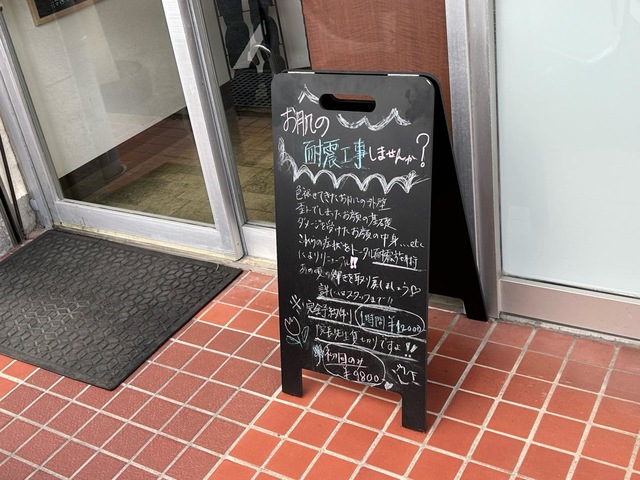 お肌の
耐震工事しませんか?
色褪せてきたお肌の外壁
歪んでしまったお顔の基礎
ダメージを受けたお顔の中身...etc
これらの症状をトータル耐震施術
によりリニューアル!!
あの頃の輝きを取り戻しましょう♡
詳しくはスタッフまで!!
※完全予約制 1時間¥12000
院長先生貸し切りですよ!!
初回のみ
¥9800